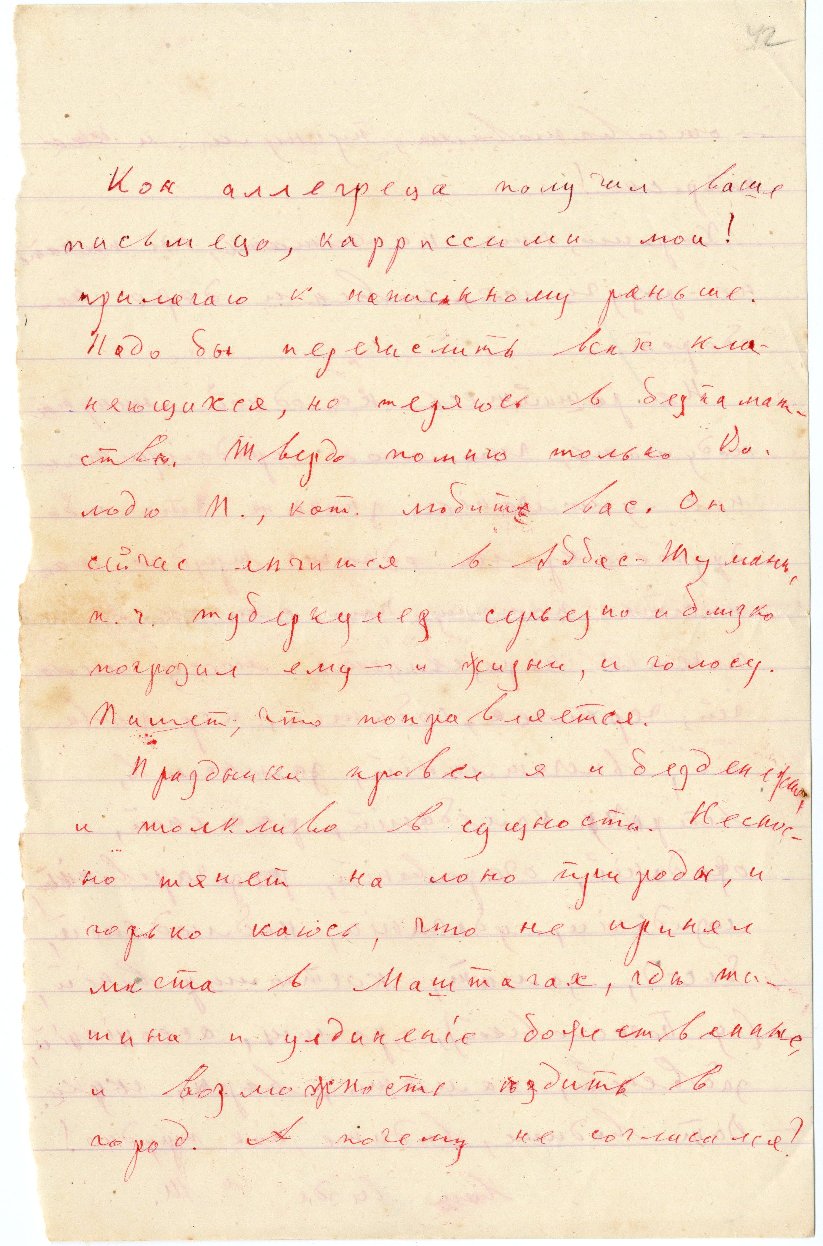 42
Кон аллегреца получил ваше
письмецо, карриссими мои!
прилагаю к написанному раньше.
Надо бы перечислить всѣх кла-
няющихся, но теряюсь в безпамят-
ствѣ. Твердо помню только Во-
лодю П., кот. любит вас. Он
сейчас лѣчится в Аббас-Туманѣ,
п. ч. туберкулез серьезно и близко
погрозил ему — и жизни, и голосу.
Пишет, что поправляется.
Праздники провел я и безденежно,
и тоскливо в сущности. Неснос-
но тянет на лоно природы, и
горько каюсь, что не принял
мѣста в Маштагах, гдѣ ти-
шина и уединеніе божественные,
и возможность ѣздить в
город. А почему не согласился?